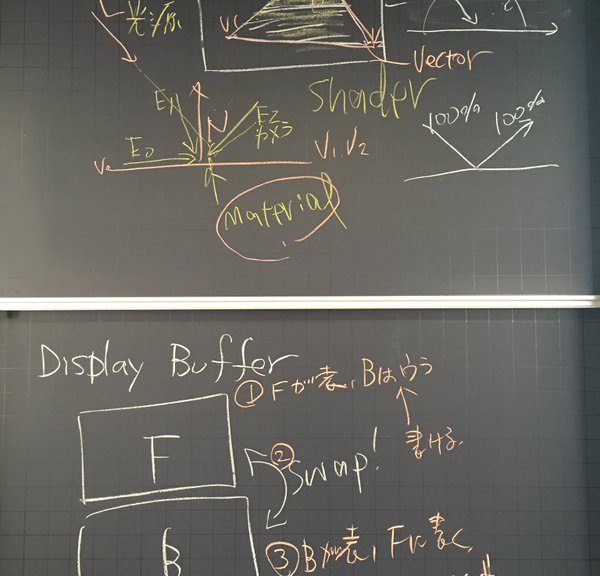 光源
V1
V2
Vector
shader
E1
N
E2
カメラ
E0
V0
V1, V2
100%
100%
Material
Display Buffer
① Fが表、Bはウラ
書ける
F
② Swap!
B
③ Bが表、Fに書く、